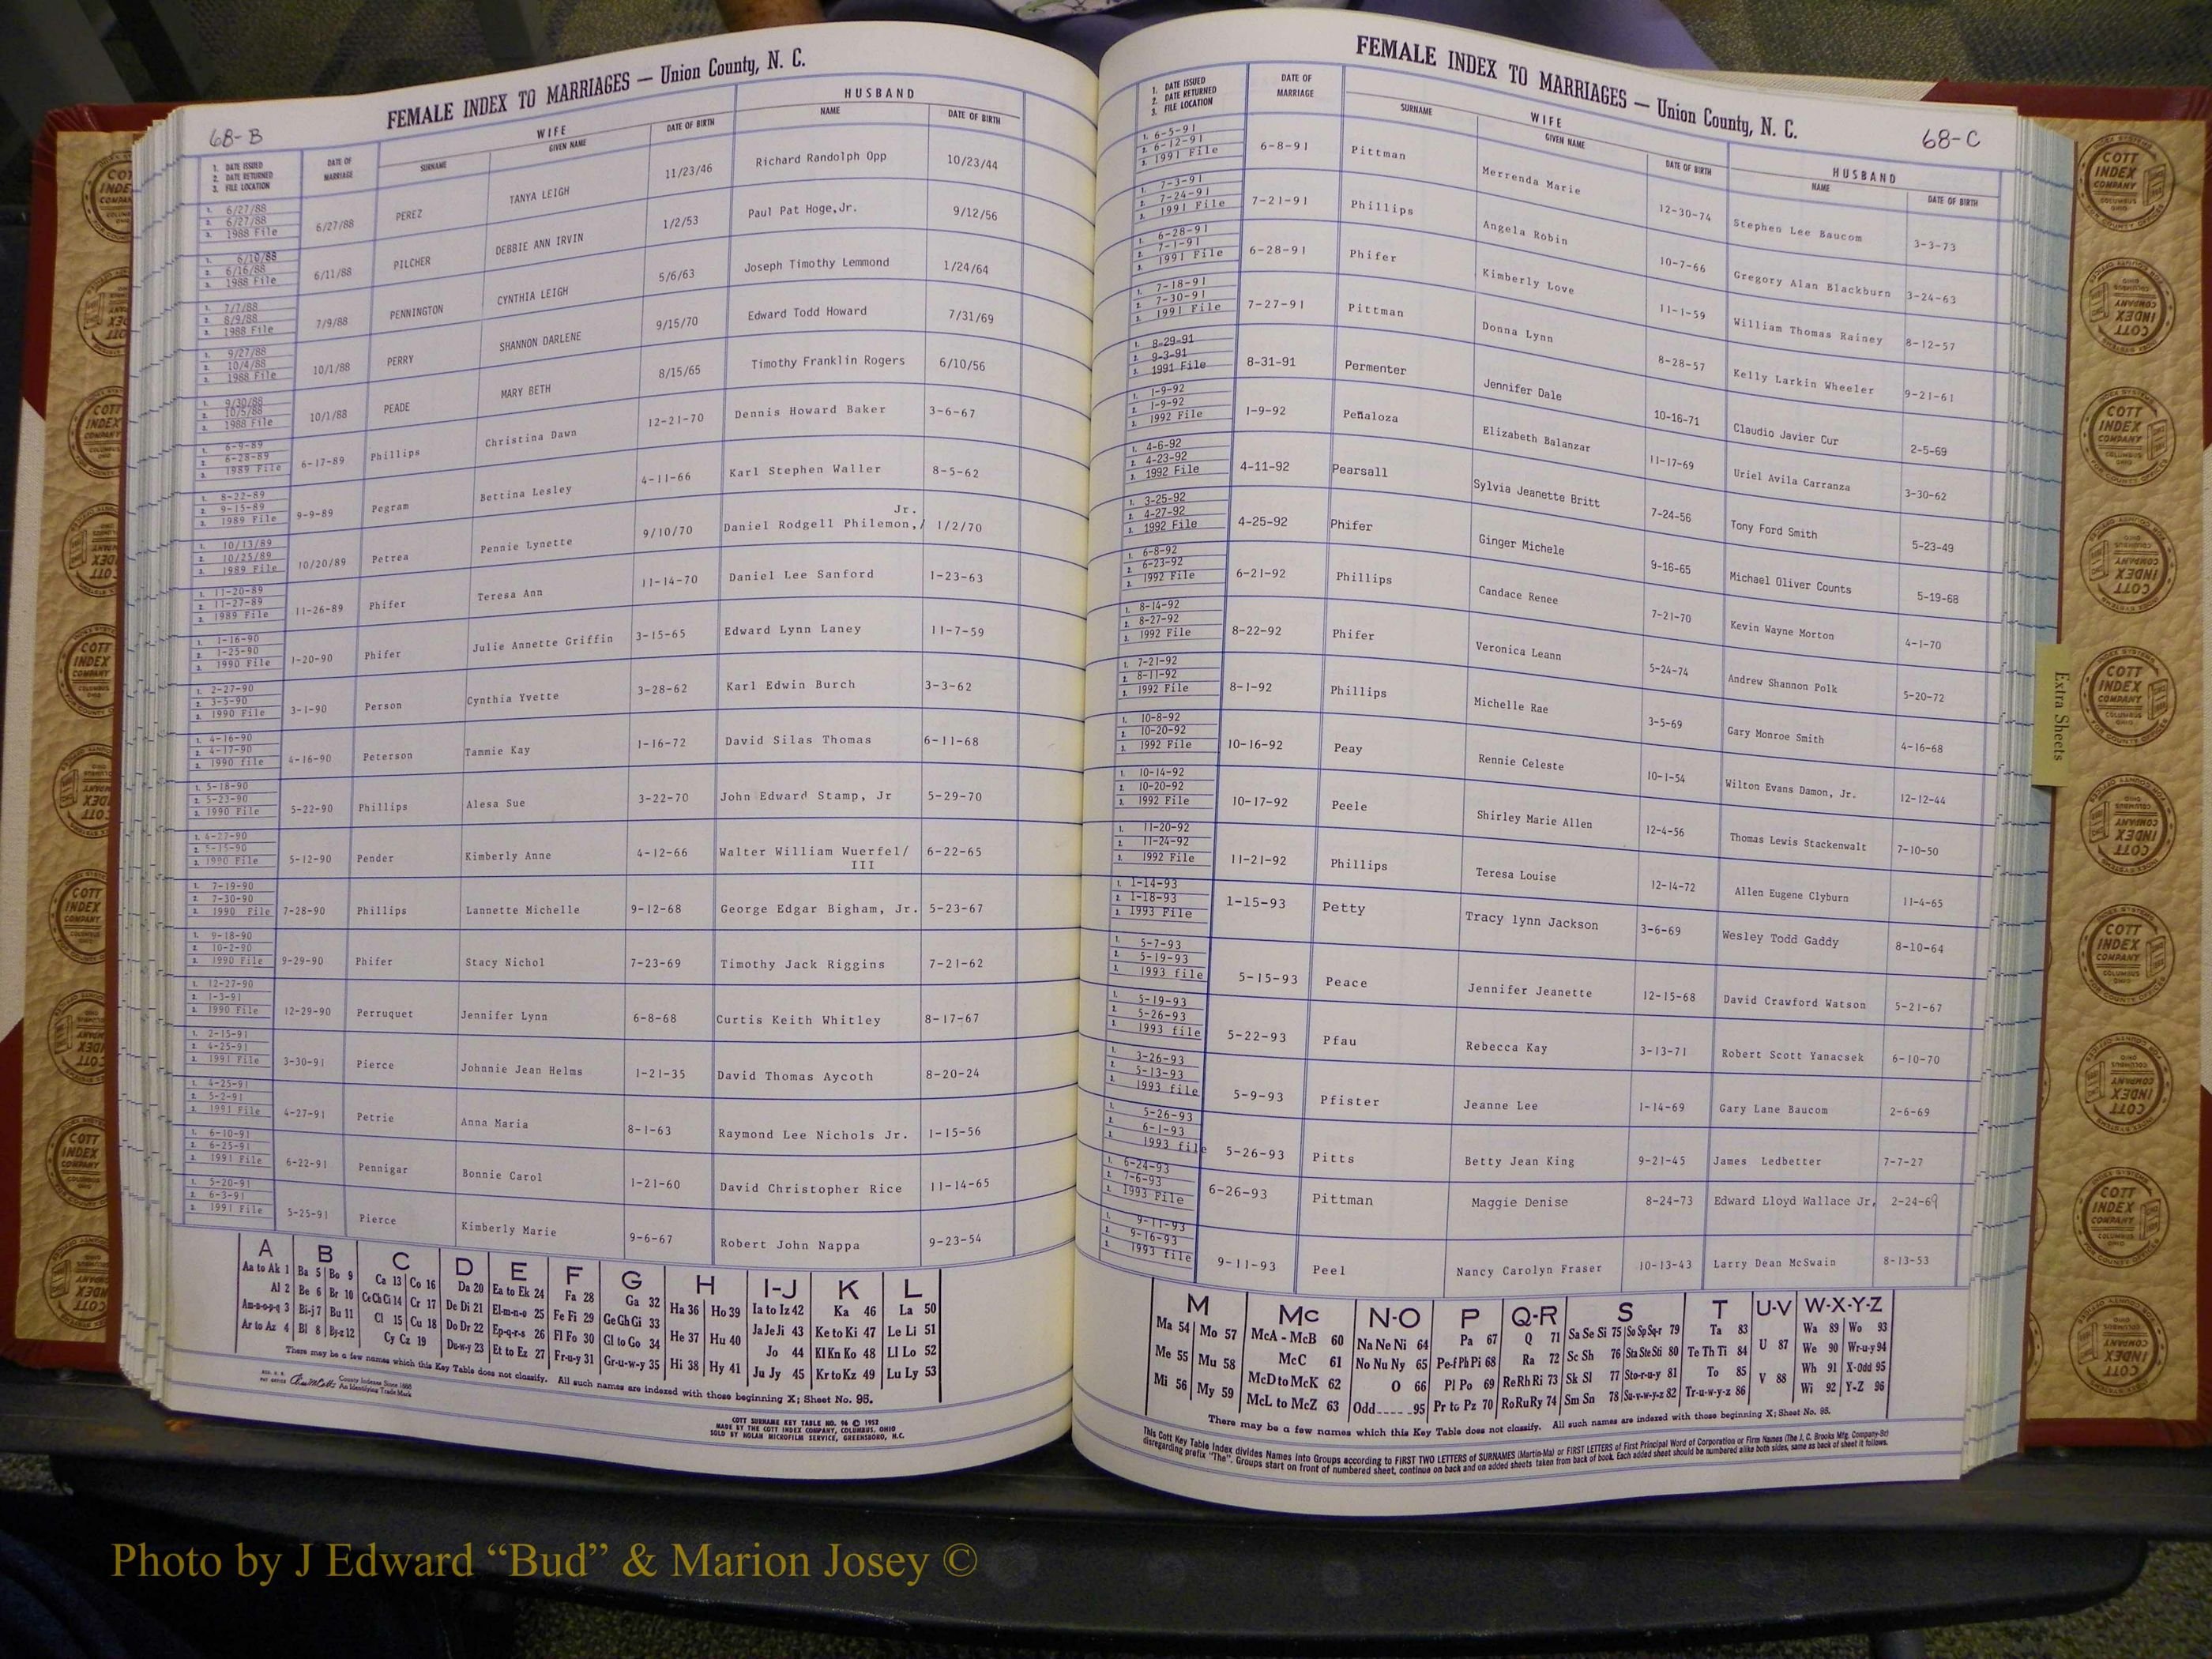 FEMALE INDEX TO MARRIAGES — Union County, N. C.
68-B
1. DATE ISSUED 2. DATE RETURNED 3. FILE LOCATION
DATE OF MARRIAGE
WIFE
SURNAME GIVEN NAME DATE OF BIRTH
HUSBAND
NAME DATE OF BIRTH
1. 6/27/88 2. 6/27/88 3. 1988 File 6/27/88 PEREZ TANYA LEIGH 11/23/46 Richard Randolph Opp 10/23/44
1. 6/10/88 2. 6/16/88 3. 1988 File 6/11/88 PILCHER DEBBIE ANN IRVIN 1/2/53 Paul Pat Hoge,Jr. 9/12/56
1. 7/7/88 2. 8/9/88 3. 1988 File 7/9/88 PENNINGTON CYNTHIA LEIGH 5/6/63 Joseph Timothy Lemmond 1/24/64
1. 9/27/88 2. 10/4/88 3. 1988 File 10/1/88 PERRY SHANNON DARLENE 9/15/70 Edward Todd Howard 7/31/69
1. 9/30/88 2. 10/5/88 3. 1988 File 10/1/88 PEADE MARY BETH 8/15/65 Timothy Franklin Rogers 6/10/56
1. 6-9-89 2. 6-28-89 3. 1989 File 6-17-89 Phillips Christina Dawn 12-21-70 Dennis Howard Baker 3-6-67
1. 8-22-89 2. 9-15-89 3. 1989 File 9-9-89 Pegram Bettina Lesley 4-11-66 Karl Stephen Waller 8-5-62
1. 10/13/89 2. 10/25/89 3. 1989 File 10/20/89 Petrea Pennie Lynette 9/10/70 Daniel Rodgell Philemon,/ Jr. 1/2/70
1. 11-20-89 2. 11-27-89 3. 1989 File 11-26-89 Phifer Teresa Ann 11-14-70 Daniel Lee Sanford 1-23-63
1. 1-16-90 2. 1-25-90 3. 1990 File 1-20-90 Phifer Julie Annette Griffin 3-15-65 Edward Lynn Laney 11-7-59
1. 2-27-90 2. 3-5-90 3. 1990 File 3-1-90 Person Cynthia Yvette 3-28-62 Karl Edwin Burch 3-3-62
1. 4-16-90 2. 4-17-90 3. 1990 file 4-16-90 Peterson Tammie Kay 1-16-72 David Silas Thomas 6-11-68
1. 5-18-90 2. 5-23-90 3. 1990 File 5-22-90 Phillips Alesa Sue 3-22-70 John Edward Stamp, Jr 5-29-70
1. 4-27-90 2. 5-15-90 3. 1990 File 5-12-90 Pender Kimberly Anne 4-12-66 Walter William Wuerfel/ III 6-22-65
1. 7-19-90 2. 7-30-90 3. 1990 File 7-28-90 Phillips Lannette Michelle 9-12-68 George Edgar Bigham, Jr. 5-23-67
1. 9-18-90 2. 10-2-90 3. 1990 File 9-29-90 Phifer Stacy Nichol 7-23-69 Timothy Jack Riggins 7-21-62
1. 12-27-90 2. 1-3-91 3. 1990 File 12-29-90 Perruquet Jennifer Lynn 6-8-68 Curtis Keith Whitley 8-17-67
1. 2-15-91 2. 4-25-91 3. 1991 File 3-30-91 Pierce Johnnie Jean Helms 1-21-35 David Thomas Aycoth 8-20-24
1. 4-25-91 2. 5-2-91 3. 1991 File 4-27-91 Petrie Anna Maria 8-1-63 Raymond Lee Nichols Jr. 1-15-56
1. 6-10-91 2. 6-25-91 3. 1991 File 6-22-91 Pennigar Bonnie Carol 1-21-60 David Christopher Rice 11-14-65
1. 5-20-91 2. 6-3-91 3. 1991 File 5-25-91 Pierce Kimberly Marie 9-6-67 Robert John Nappa 9-23-54
A B C D E F G H I-J K L
Aa to Ak 1 Ba 5 Bo 9 Ca 13 Co 16 Da 20 Ea to Ek 24 Fa 28 Ga 32 Ha 36 Ho 39 Ia to Iz 42 Ka 46 La 50
Al 2 Be 6 Br 10 Ce Ch Ci 14 Cr 17 De Di 21 El-m-n-o 25 Fe Fi 29 Ge Gh Gi 33 He 37 Hu 40 Ja Je Ji 43 Ke to Ki 47 Le Li 51
Am-n-o-p-q 3 Bi-j 7 Bu 11 Cl 15 Cu 18 Do Dr 22 Ep-q-r-s 26 Fl Fo 30 Gl to Go 34 Hi 38 Hy 41 Jo 44 Kl Kn Ko 48 Ll Lo 52
Ar to Az 4 Bl 8 By-z 12 Cy Cz 19 Du-w-y 23 Et to Ez 27 Fr-u-y 31 Gr-u-w-y 35 Ju Jy 45 Kr to Kz 49 Lu Ly 53
There may be a few names which this Key Table does not classify. All such names are indexed with those beginning X; Sheet No. 95.
County Indexes Since 1888
An Identifying Trade Mark
COTT SURNAME KEY TABLE NO. 96 © 1952
MADE BY THE COTT INDEX COMPANY, COLUMBUS, OHIO
SOLD BY NOLAN MICROFILM SERVICE, GREENSBORO, N.C.
FEMALE INDEX TO MARRIAGES — Union County, N. C.
68-C
1. DATE ISSUED 2. DATE RETURNED 3. FILE LOCATION
DATE OF MARRIAGE
WIFE
SURNAME GIVEN NAME DATE OF BIRTH
HUSBAND
NAME DATE OF BIRTH
1. 6-5-91 2. 6-12-91 3. 1991 File 6-8-91 Pittman Merrenda Marie 12-30-74 Stephen Lee Baucom 3-3-73
1. 7-3-91 2. 7-24-91 3. 1991 File 7-21-91 Phillips Angela Robin 10-7-66 Gregory Alan Blackburn 3-24-63
1. 6-28-91 2. 7-1-91 3. 1991 File 6-28-91 Phifer Kimberly Love 11-1-59 William Thomas Rainey 8-12-57
1. 7-18-91 2. 7-30-91 3. 1991 File 7-27-91 Pittman Donna Lynn 8-28-57 Kelly Larkin Wheeler 9-21-61
1. 8-29-91 2. 9-3-91 3. 1991 File 8-31-91 Permenter Jennifer Dale 10-16-71 Claudio Javier Cur 2-5-69
1. 1-9-92 2. 1-9-92 3. 1992 File 1-9-92 Peñaloza Elizabeth Balanzar 11-17-69 Uriel Avila Carranza 3-30-62
1. 4-6-92 2. 4-23-92 3. 1992 File 4-11-92 Pearsall Sylvia Jeanette Britt 7-24-56 Tony Ford Smith 5-23-49
1. 3-25-92 2. 4-27-92 3. 1992 File 4-25-92 Phifer Ginger Michele 9-16-65 Michael Oliver Counts 5-19-68
1. 6-8-92 2. 6-23-92 3. 1992 File 6-21-92 Phillips Candace Renee 7-21-70 Kevin Wayne Morton 4-1-70
1. 8-14-92 2. 8-27-92 3. 1992 File 8-22-92 Phifer Veronica Leann 5-24-74 Andrew Shannon Polk 5-20-72
1. 7-21-92 2. 8-11-92 3. 1992 File 8-1-92 Phillips Michelle Rae 3-5-69 Gary Monroe Smith 4-16-68
1. 10-8-92 2. 10-20-92 3. 1992 File 10-16-92 Peay Rennie Celeste 10-1-54 Wilton Evans Damon, Jr. 12-12-44
1. 10-14-92 2. 10-20-92 3. 1992 File 10-17-92 Peele Shirley Marie Allen 12-4-56 Thomas Lewis Stackenwalt 7-10-50
1. 11-20-92 2. 11-24-92 3. 1992 File 11-21-92 Phillips Teresa Louise 12-14-72 Allen Eugene Clyburn 11-4-65
1. 1-14-93 2. 1-18-93 3. 1993 File 1-15-93 Petty Tracy lynn Jackson 3-6-69 Wesley Todd Gaddy 8-10-64
1. 5-7-93 2. 5-19-93 3. 1993 file 5-15-93 Peace Jennifer Jeanette 12-15-68 David Crawford Watson 5-21-67
1. 5-19-93 2. 5-26-93 3. 1993 file 5-22-93 Pfau Rebecca Kay 3-13-71 Robert Scott Yanacsek 6-10-70
1. 3-26-93 2. 5-13-93 3. 1993 file 5-9-93 Pfister Jeanne Lee 1-14-69 Gary Lane Baucom 2-6-69
1. 5-26-93 2. 6-1-93 3. 1993 file 5-26-93 Pitts Betty Jean King 9-21-45 James Ledbetter 7-7-27
1. 6-24-93 2. 7-6-93 3. 1993 File 6-26-93 Pittman Maggie Denise 8-24-73 Edward Lloyd Wallace Jr, 2-24-69
1. 9-11-93 2. 9-16-93 3. 1993 file 9-11-93 Peel Nancy Carolyn Fraser 10-13-43 Larry Dean McSwain 8-13-53
M Mc N-O P Q-R S T U-V W-X-Y-Z
Ma 54 Mo 57 McA - McB 60 Na Ne Ni 64 Pa 67 Q 71 Sa Se Si 75 So Sp Sq-r 79 Ta 83 U 87 Wa 89 Wo 93
Me 55 Mu 58 McC 61 No Nu Ny 65 Pe-f Ph Pi 68 Ra 72 Sc Sh 76 Sta Ste Sti 80 Te Th Ti 84 We 90 Wr-u-y 94
Mi 56 My 59 McD to McK 62 O 66 Pl Po 69 Re Rh Ri 73 Sk Sl 77 Sto-r-u-y 81 To 85 V 88 Wh 91 X-Odd 95
McL to McZ 63 Odd 95 Pr to Pz 70 Ro Ru Ry 74 Sm Sn 78 Su-v-w-y-z 82 Tr-u-w-y-z 86 Wi 92 Y-Z 96
There may be a few names which this Key Table does not classify. All such names are indexed with those beginning X; Sheet No. 95.
This Cott Key Table Index divides Names Into Groups according to FIRST TWO LETTERS of SURNAMES (Martin-Ma) or FIRST LETTERS of First Principal Word of Corporation or Firm Names (The J. C. Brooks Mfg. Company-Br)
disregarding prefix "The". Groups start on front of numbered sheet, continue on back and on added sheets taken from back of book. Each added sheet should be numbered alike both sides, same as back of sheet it follows.
Extra Sheets
COTT INDEX COMPANY COLUMBUS OHIO
Photo by J Edward “Bud” & Marion Josey ©